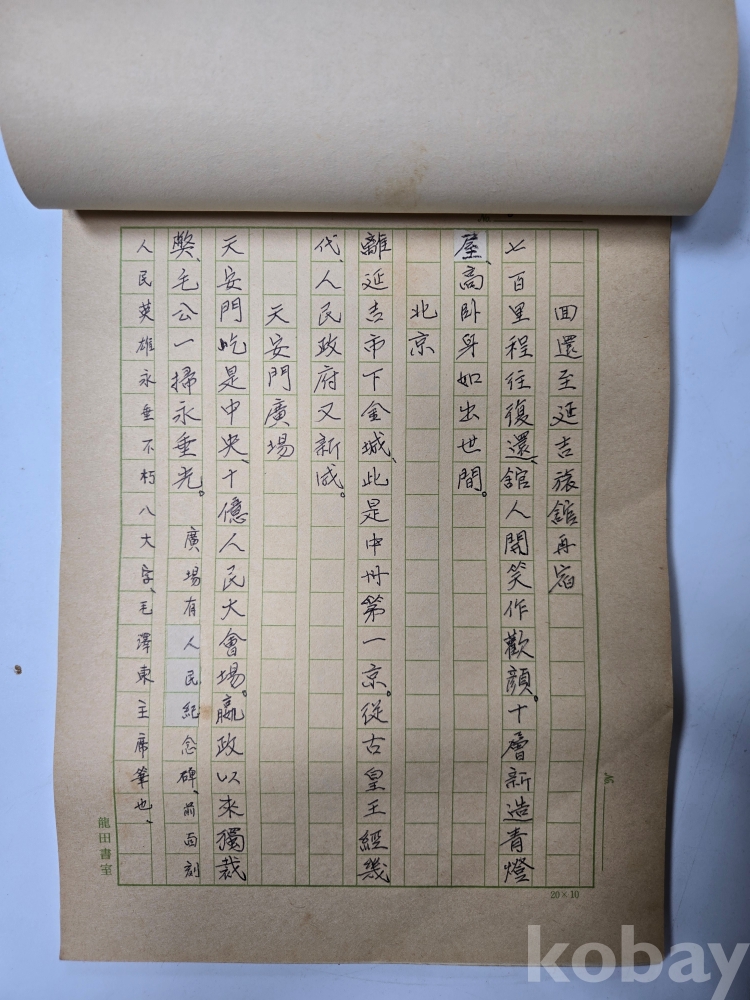 回還至延吉旅舘再宿
七百里程往復還、舘人開笑作歡顔。十層新造青燈
屋、高卧身如出世間。
北京
離延吉市下金城、此是中州第一京。從古皇王經幾
代、人民政府又新成。
天安門廣場
天安門屹是中央、十億人民大會場。嬴政以來獨裁
獘、毛公一掃永垂光。 廣場有人民紀念碑、前面刻
人民英雄永垂不朽八大字、毛澤東主席筆也、
龍田書室
20×10
kobay